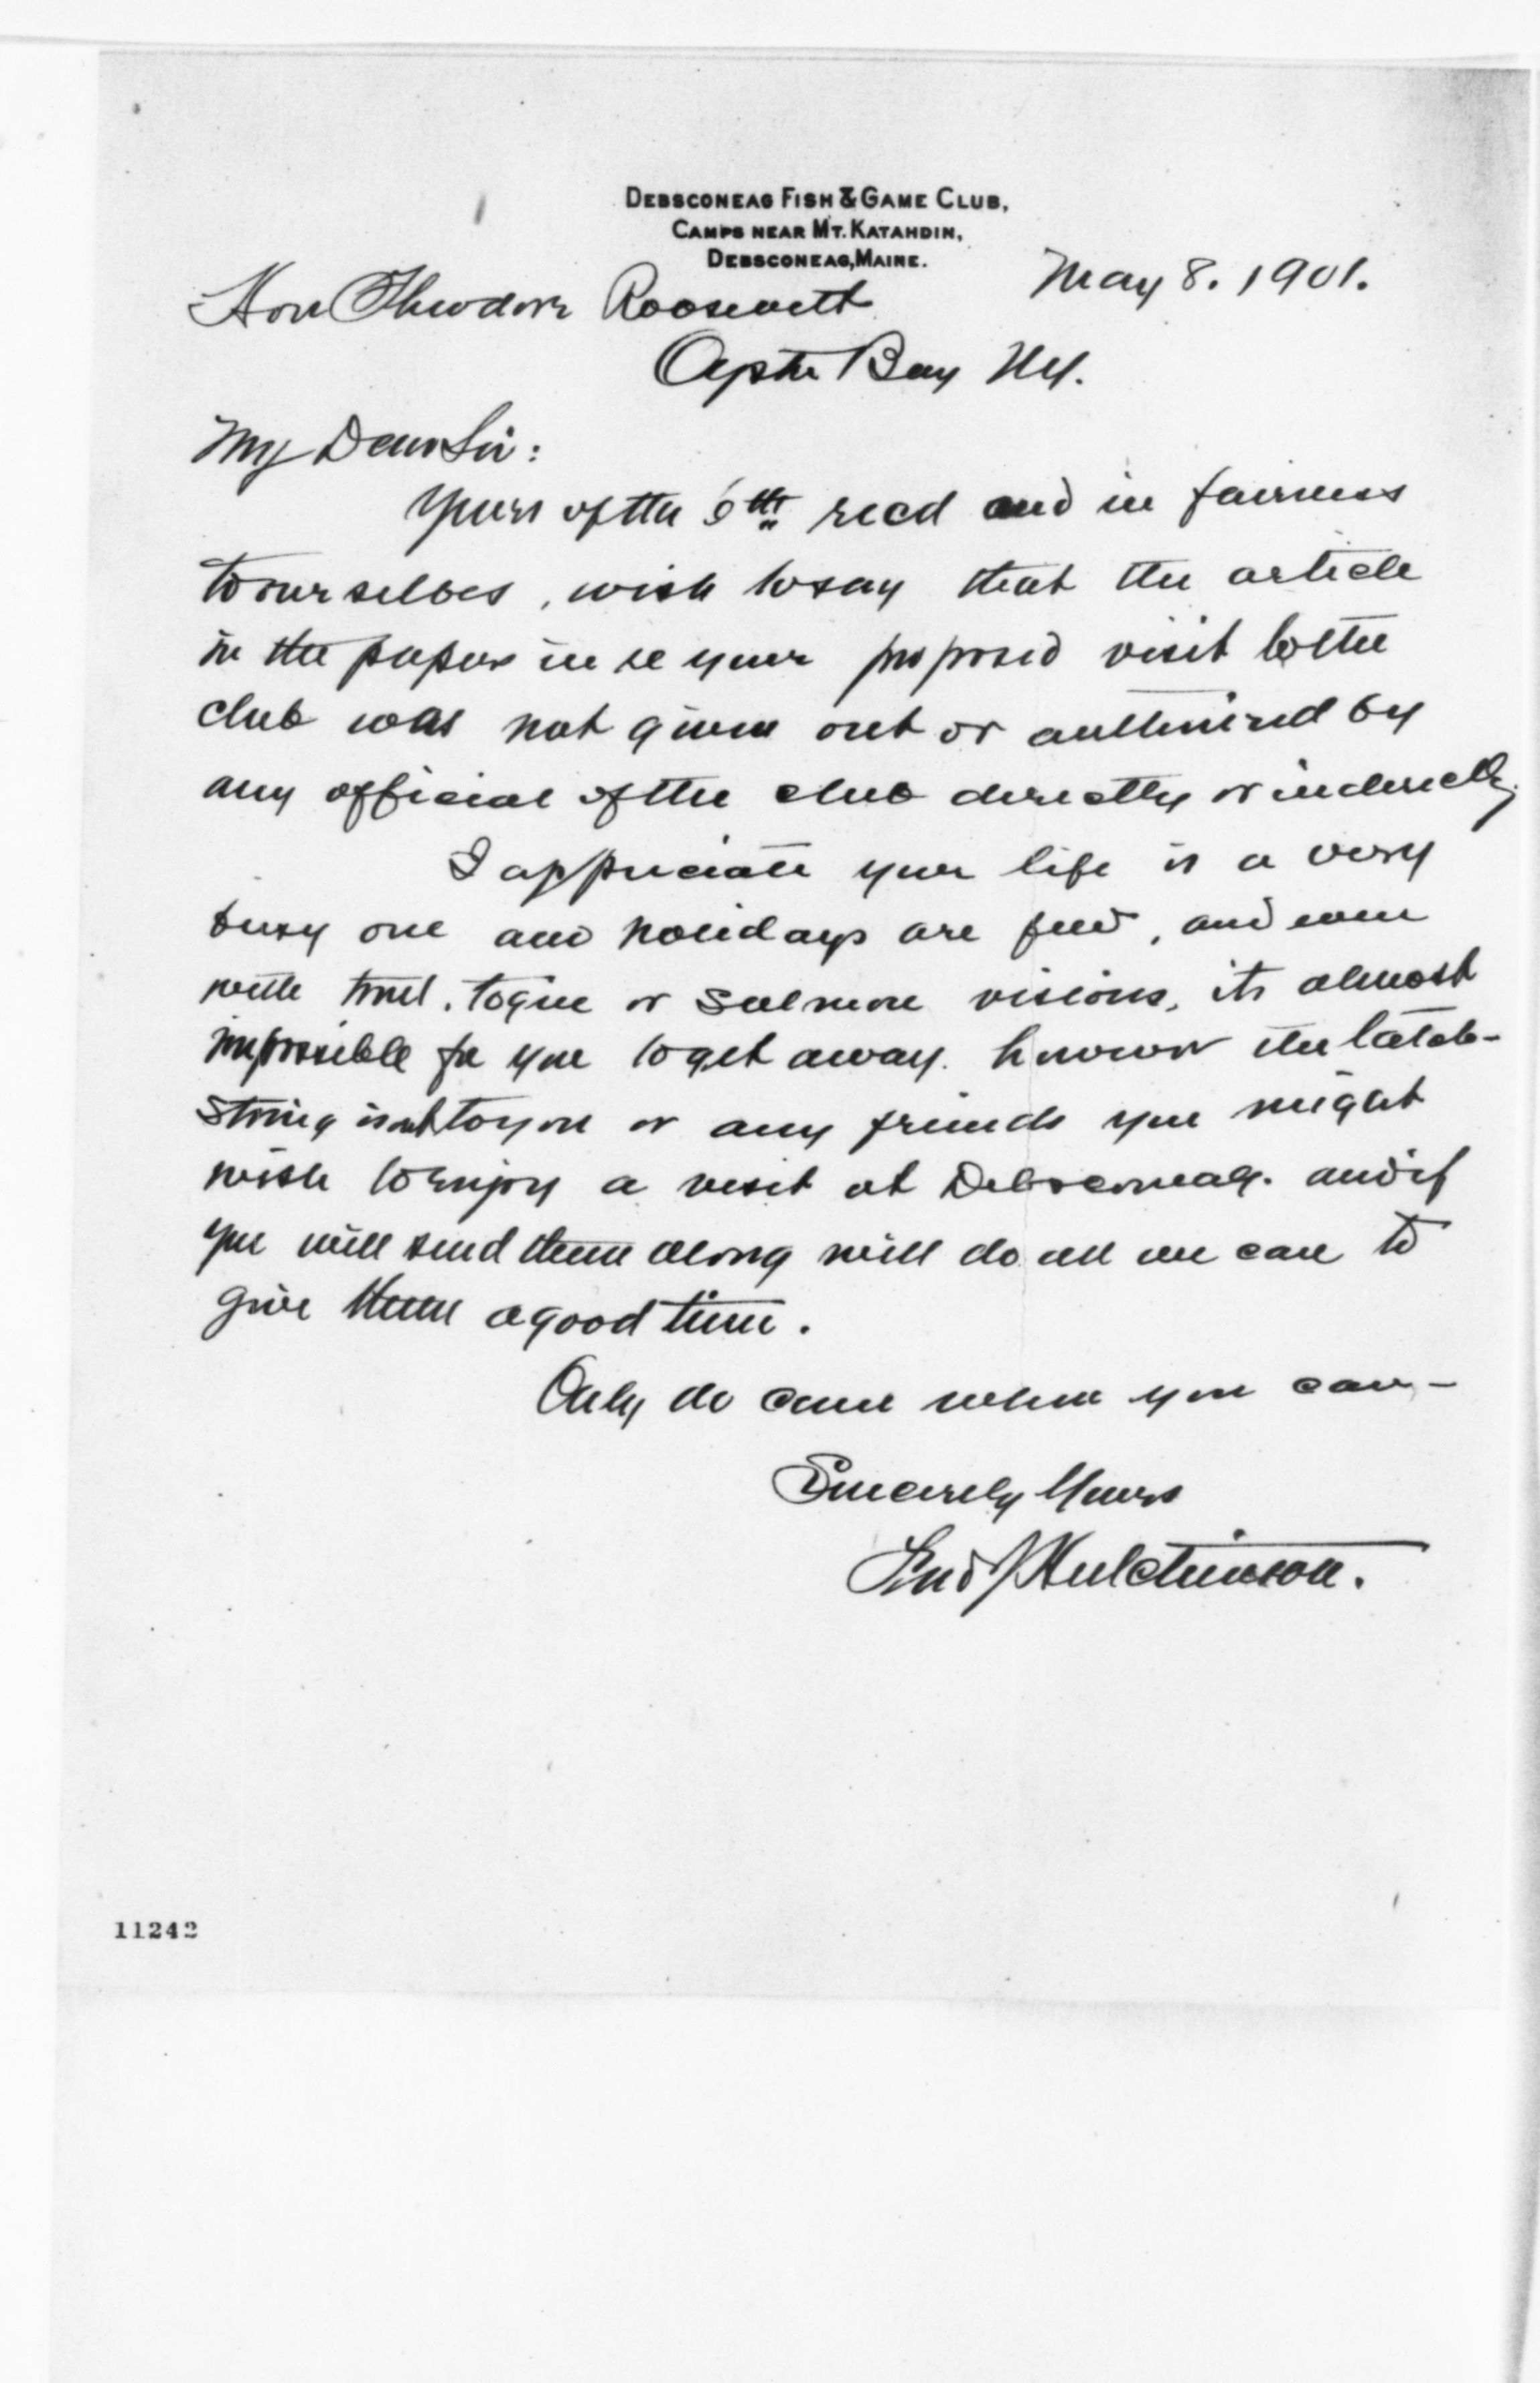 DEBSCONEAG FISH & GAME CLUB,
CAMPS NEAR MT. KATAHDIN,
DEBSCONEAG, MAINE.
May 8. 1901.
Hon Theodore Roosevelt
Oyster Bay NY.
My Dear Sir:
Yours of the 6th recd and in fairness
to ourselves, wish to say that the article
in the papers in re your proposed visit to the
club was not given out or authorized by
any official of the club directly or indirectly.
I appreciate your life is a very
busy one and holidays are few, and even
with trout, togue or salmon visions, its almost
impossible for you to get away. However the latch-
string is out to you or any friends you might
wish to enjoy a visit at Debsconeag. and if
you will send them along will do all we can to
give them a good time.
Only do come when you can -
Sincerely Yours
Hutchinson.
11242